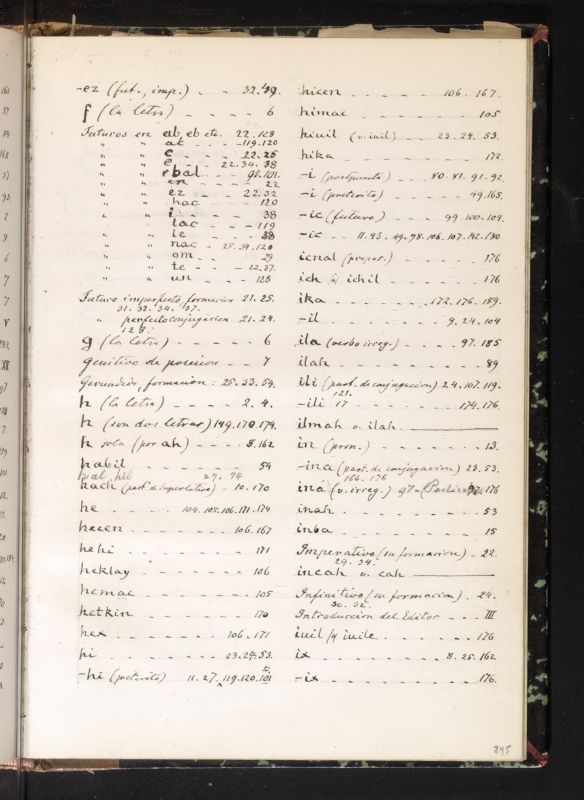 -ez (fut., imp.) - - 32.49.
f (la letra) - - - - - 6
Futuros en ab, eb etc. 22.128
" " at - - - - 119.120
" " c - - - - 22.25
" " e - - - 22.34.38
" " bal - - - 95.101.
" " en - - - - 22
" " ez - - - 22.32
" " hac - - - 120
" " i - - - - 38
" " lac - - - 119
" " le - - - - 38
" " nac - 25.39.120
" " om - - - - 29
" " te - - - 22.37.
" " un - - - - 125
Futuro imperfecto formacion 21.25.
31. 32. 34. 37.
" perfecto conjugacion 21.24.
128.
g (la letra) - - - - - 6
genitivo de posesion - - 7
Gerundios, formacion: 25.33.54.
h (la letra) - - - - 2. 4.
h (son dos letras) 149.170.174.
h sola (por ah) - - - 8.162
habil - - - - - - 54
hal, hil 27. 74
hach (part. de superlativo) - 10.170
he - - - - 104.105.106.171.174
hecen - - - - - 106.167
hehi - - - - - - 171
heklay - - - - - 106
hemac - - - - - 105
hetkin - - - - - 170
hex - - - - - 106.171
hi - - - - - 23.24.53.
-hi (preterito) 11.27.119.120.101
hicen - - - - - 106. 167.
himac - - - - - - 105
hiuil (v. iuil) - - - 23.24.53.
hika - - - - - - 172.
-i (posesivo) - - - 80.81.91.92
-i (preterito) - - - - 49.165.
-ic (futuro) - - - 99.100.104.
-ic - - 11.43.49.98.106.107.142.180
icnal (prepos.) - - - - 176
ich ichil - - - - - 176
ika - - - - - 172.176.189.
-il - - - - - - 9.24.104
ila (verbo irreg.) - - - 97.185
ilah - - - - - - 89
ili (part. de conjugacion) 24.107.119.
121.
-ili 17 - - - - - 174.176.
ilmah v. ilah.
in (pron.) - - - - - 13.
-ina (part. de conjugacion) 23.53.
166. 176
ina (v. irreg.) 97 176
inah - - - - - - 53
inba - - - - - - 15
Imperativo (su formacion) - 22.
29. 34.
incah v. cah
Infinitivo (su formacion) - 24.
30. 32.
Introduccion del Editor - - - III
iuil iuile - - - - - 176
ix - - - - - - 8.25.162
-ix - - - - - - 176.
245